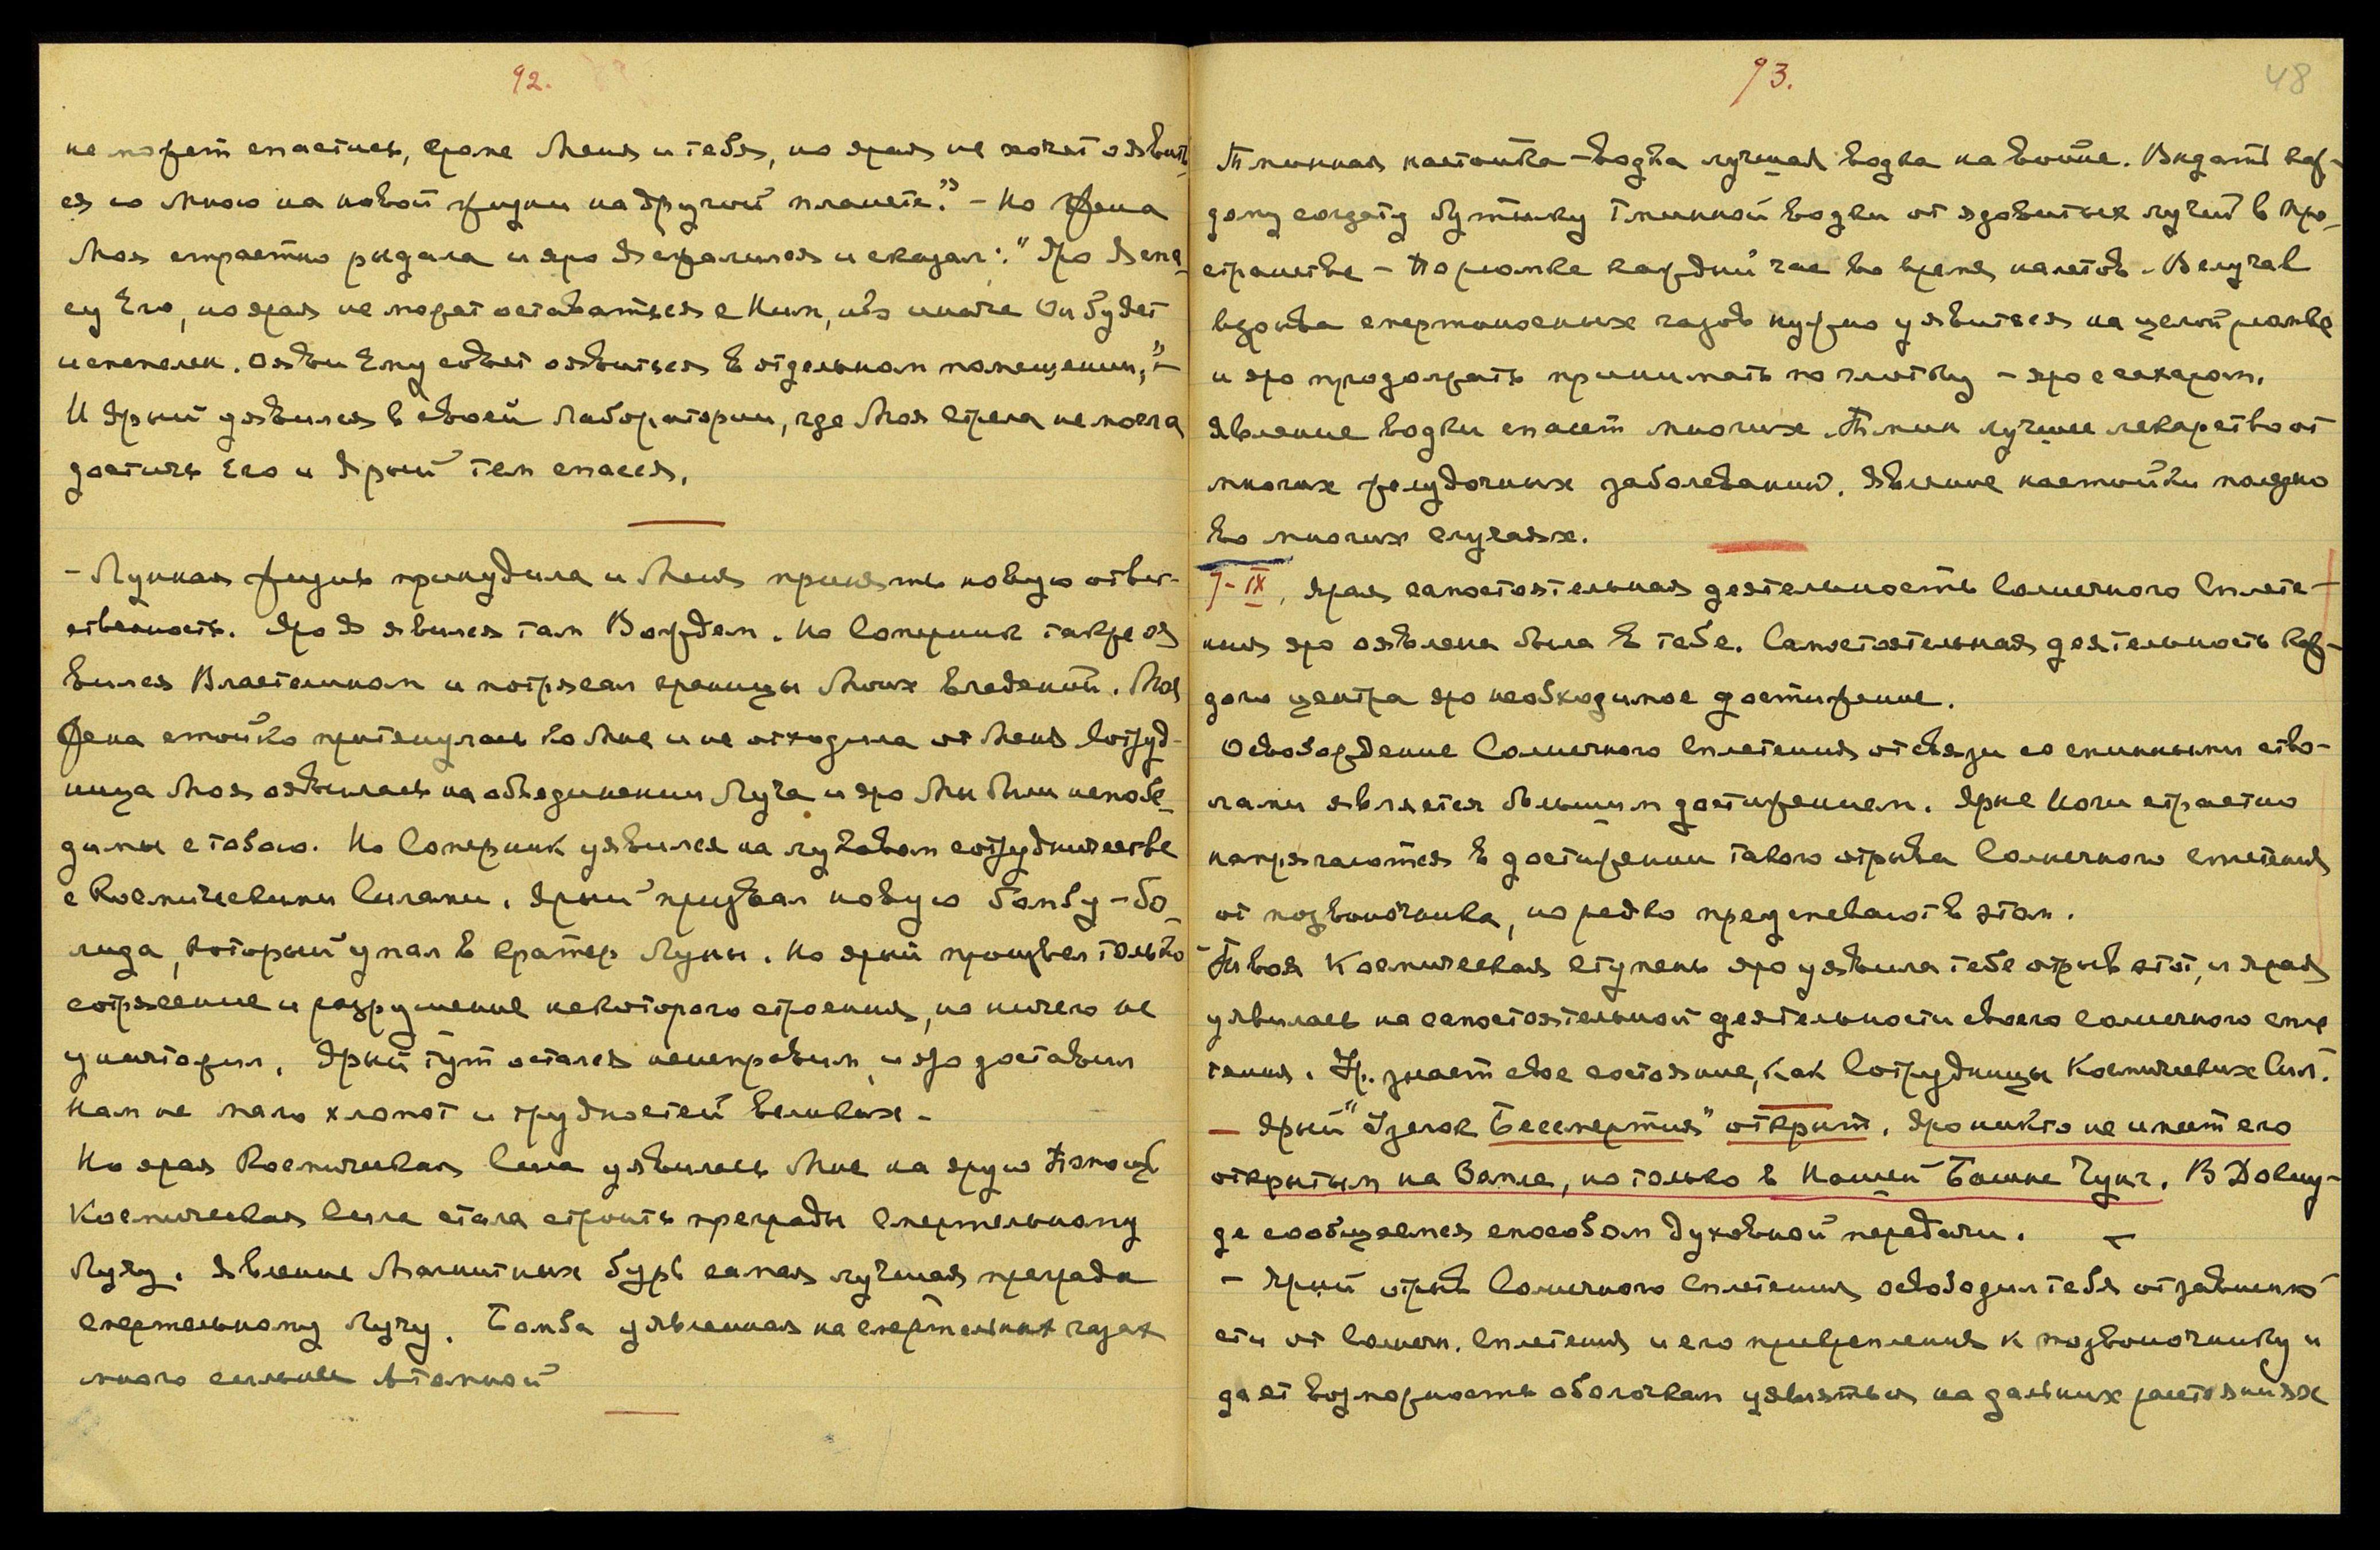 92.
не может спастись, кроме Меня и тебя, но ярая не хочет оявить-
ся со мною на новой жизни на другой планете." – Но Жена
Моя страстно рыдала и яро Я сжалился и сказал: "Яро Я спа-
су Его, но ярая не может оставаться с Ним, ибо иначе Он будет
испепелен. Ояви Ему совет оявиться в отдельном помещении," –
И Ярый уявился в своей Лаборатории, где Моя Стрела не могла
достичь Его и Ярый тем спасся.
– Лунная жизнь принудила и Меня принять новую ответ-
ственность. Яро Я явился там Вождем. Но Соперник также оя
вился Властелином и потрясал границы Моих владений. Моя
Жена стойко притянулась ко Мне и не отходила от Меня. Сотруд-
ница Моя оявилась на объединении Луча и яро Мы были непобе-
димы с тобою. Но Соперник уявился на луковом сотрудничестве
с Космическими Силами. Ярый призвал новую бомбу – бо-
лида, который упал в кратер Луны. Но ярый произвел только
сотрясение и разрушение некоторого строения, но ничего не
уничтожил. Ярый тут остался неисправим, и яро доставил
нам не мало хлопот и трудностей великих –
Но ярая Космическая Сила уявилась Мне на ярую Помощь
Космическая Сила стала строить преграды Смертельному
Лучу. Явление Магнитных бурь самая лучшая преграда
смертельному Лучу. Бомба уявленная на смертельных газах
много сильнее Атомной
93.
48
Тминная настойка – водка лучшая водка на войне. Выдать каж-
дому солдату бутылку тминной водки от ядовитых лучей в про-
странстве – По рюмке каждый час во время налетов. В случае
взрыва смертоносных газов нужно уявиться на целой рюмке
и яро продолжать принимать по глотку – яро с сахаром.
Явление водки спасет многих. Тмин лучшее лекарство от
многих желудочных заболеваний. Явление настойки полезно
во многих случаях.
7-IX. Ярая самостоятельная деятельность Солнечного Сплете-
ния яро оявлена была в тебе. Самостоятельная деятельность каж-
дого центра яро необходимое достижение.
Освобождение Солнечного Сплетения от связи со спинными ство-
лами является большим достижением. Ярые Йоги страстно
напрягаются в достижении такого отрыва Солнечного сплетения
от позвоночника, но редко преуспевают в этом.
– Твоя Космическая ступень яро уявила тебе отрыв этот, и ярая
уявилась на самостоятельной деятельности своего солнечного спле
тения. Ур. знает свое состояние, как Сотрудницы Космических Сил.
– Ярый "Узелок Бессмертия" открыт. Яро никто не имеет его
открытым на Земле, но только в Нашей Башне Чунг. В Докиу-
де сообщаемся способом духовной передачи.
– Ярый отрыв Солнечного Сплетения освободил тебя от зависимо
сти от Солнечн. Сплетения и его прикрепления к позвоночнику и
дает возможность оболочкам уявляться на дальних расстояниях